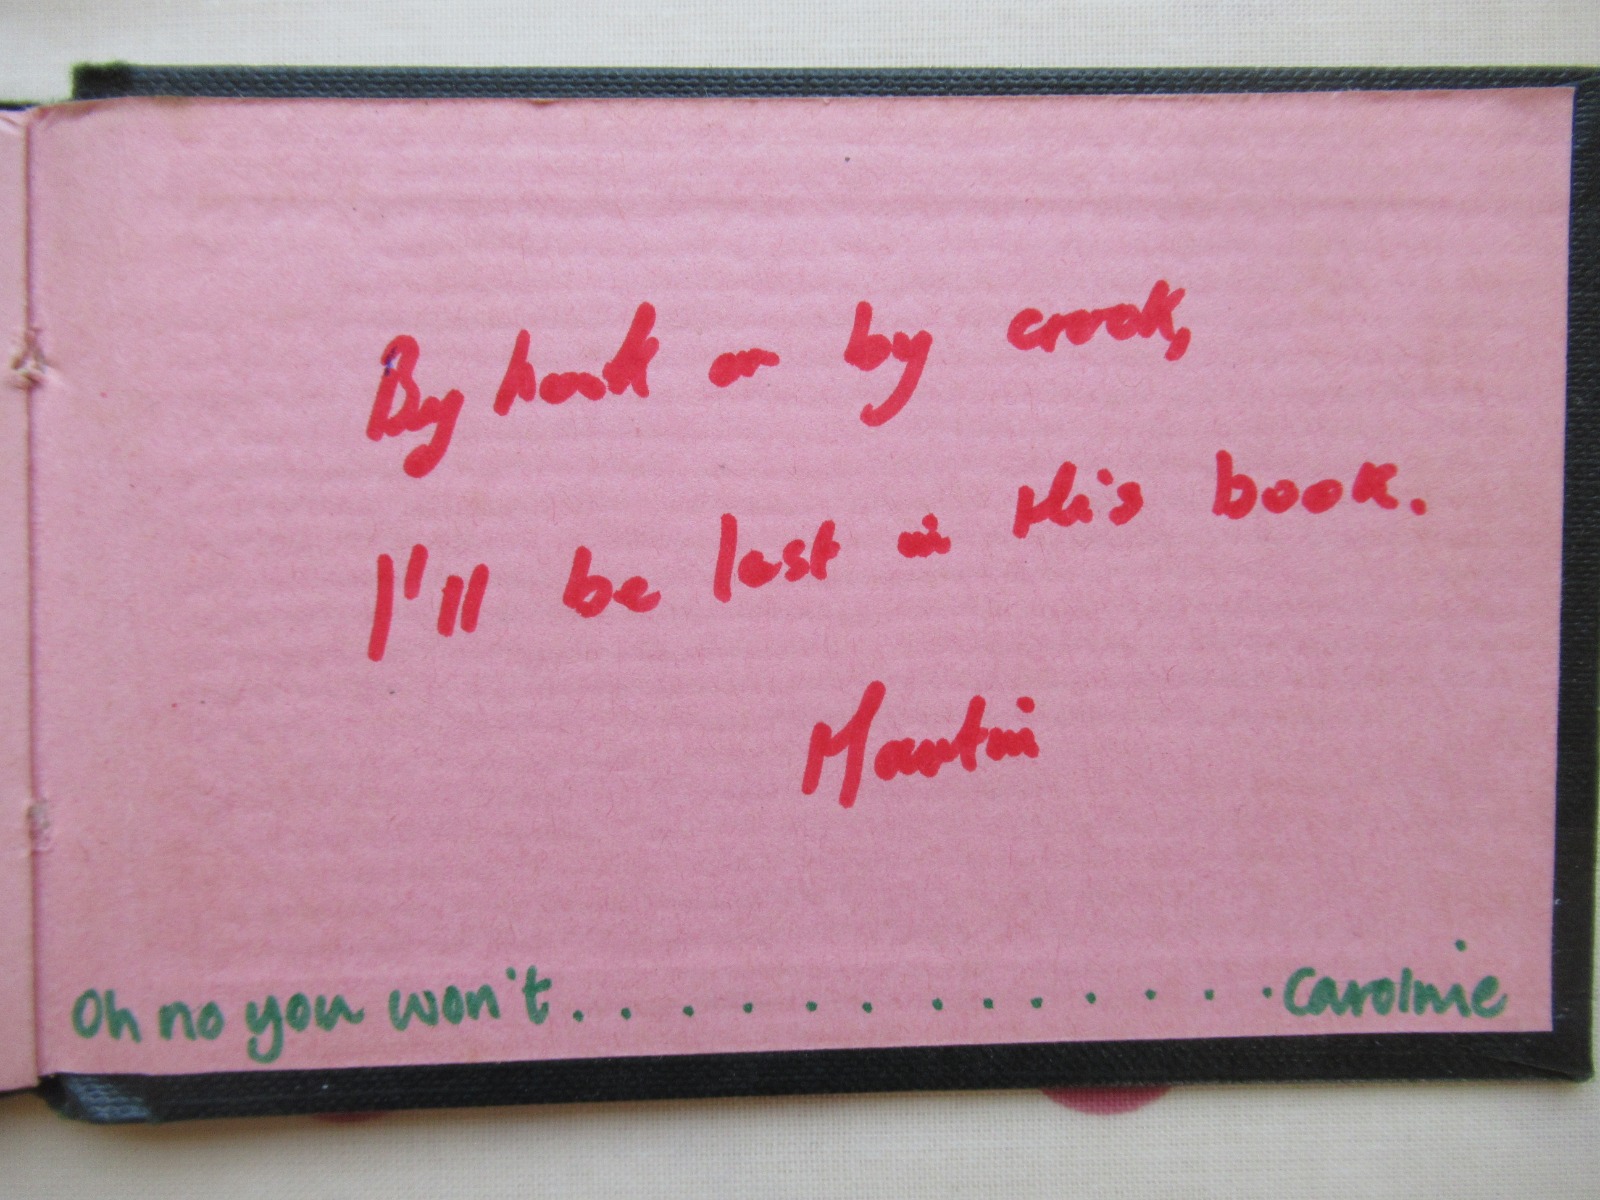 By hook or by crook,
I'll be last in this book.
Martin
Oh no you won't.............Caroline